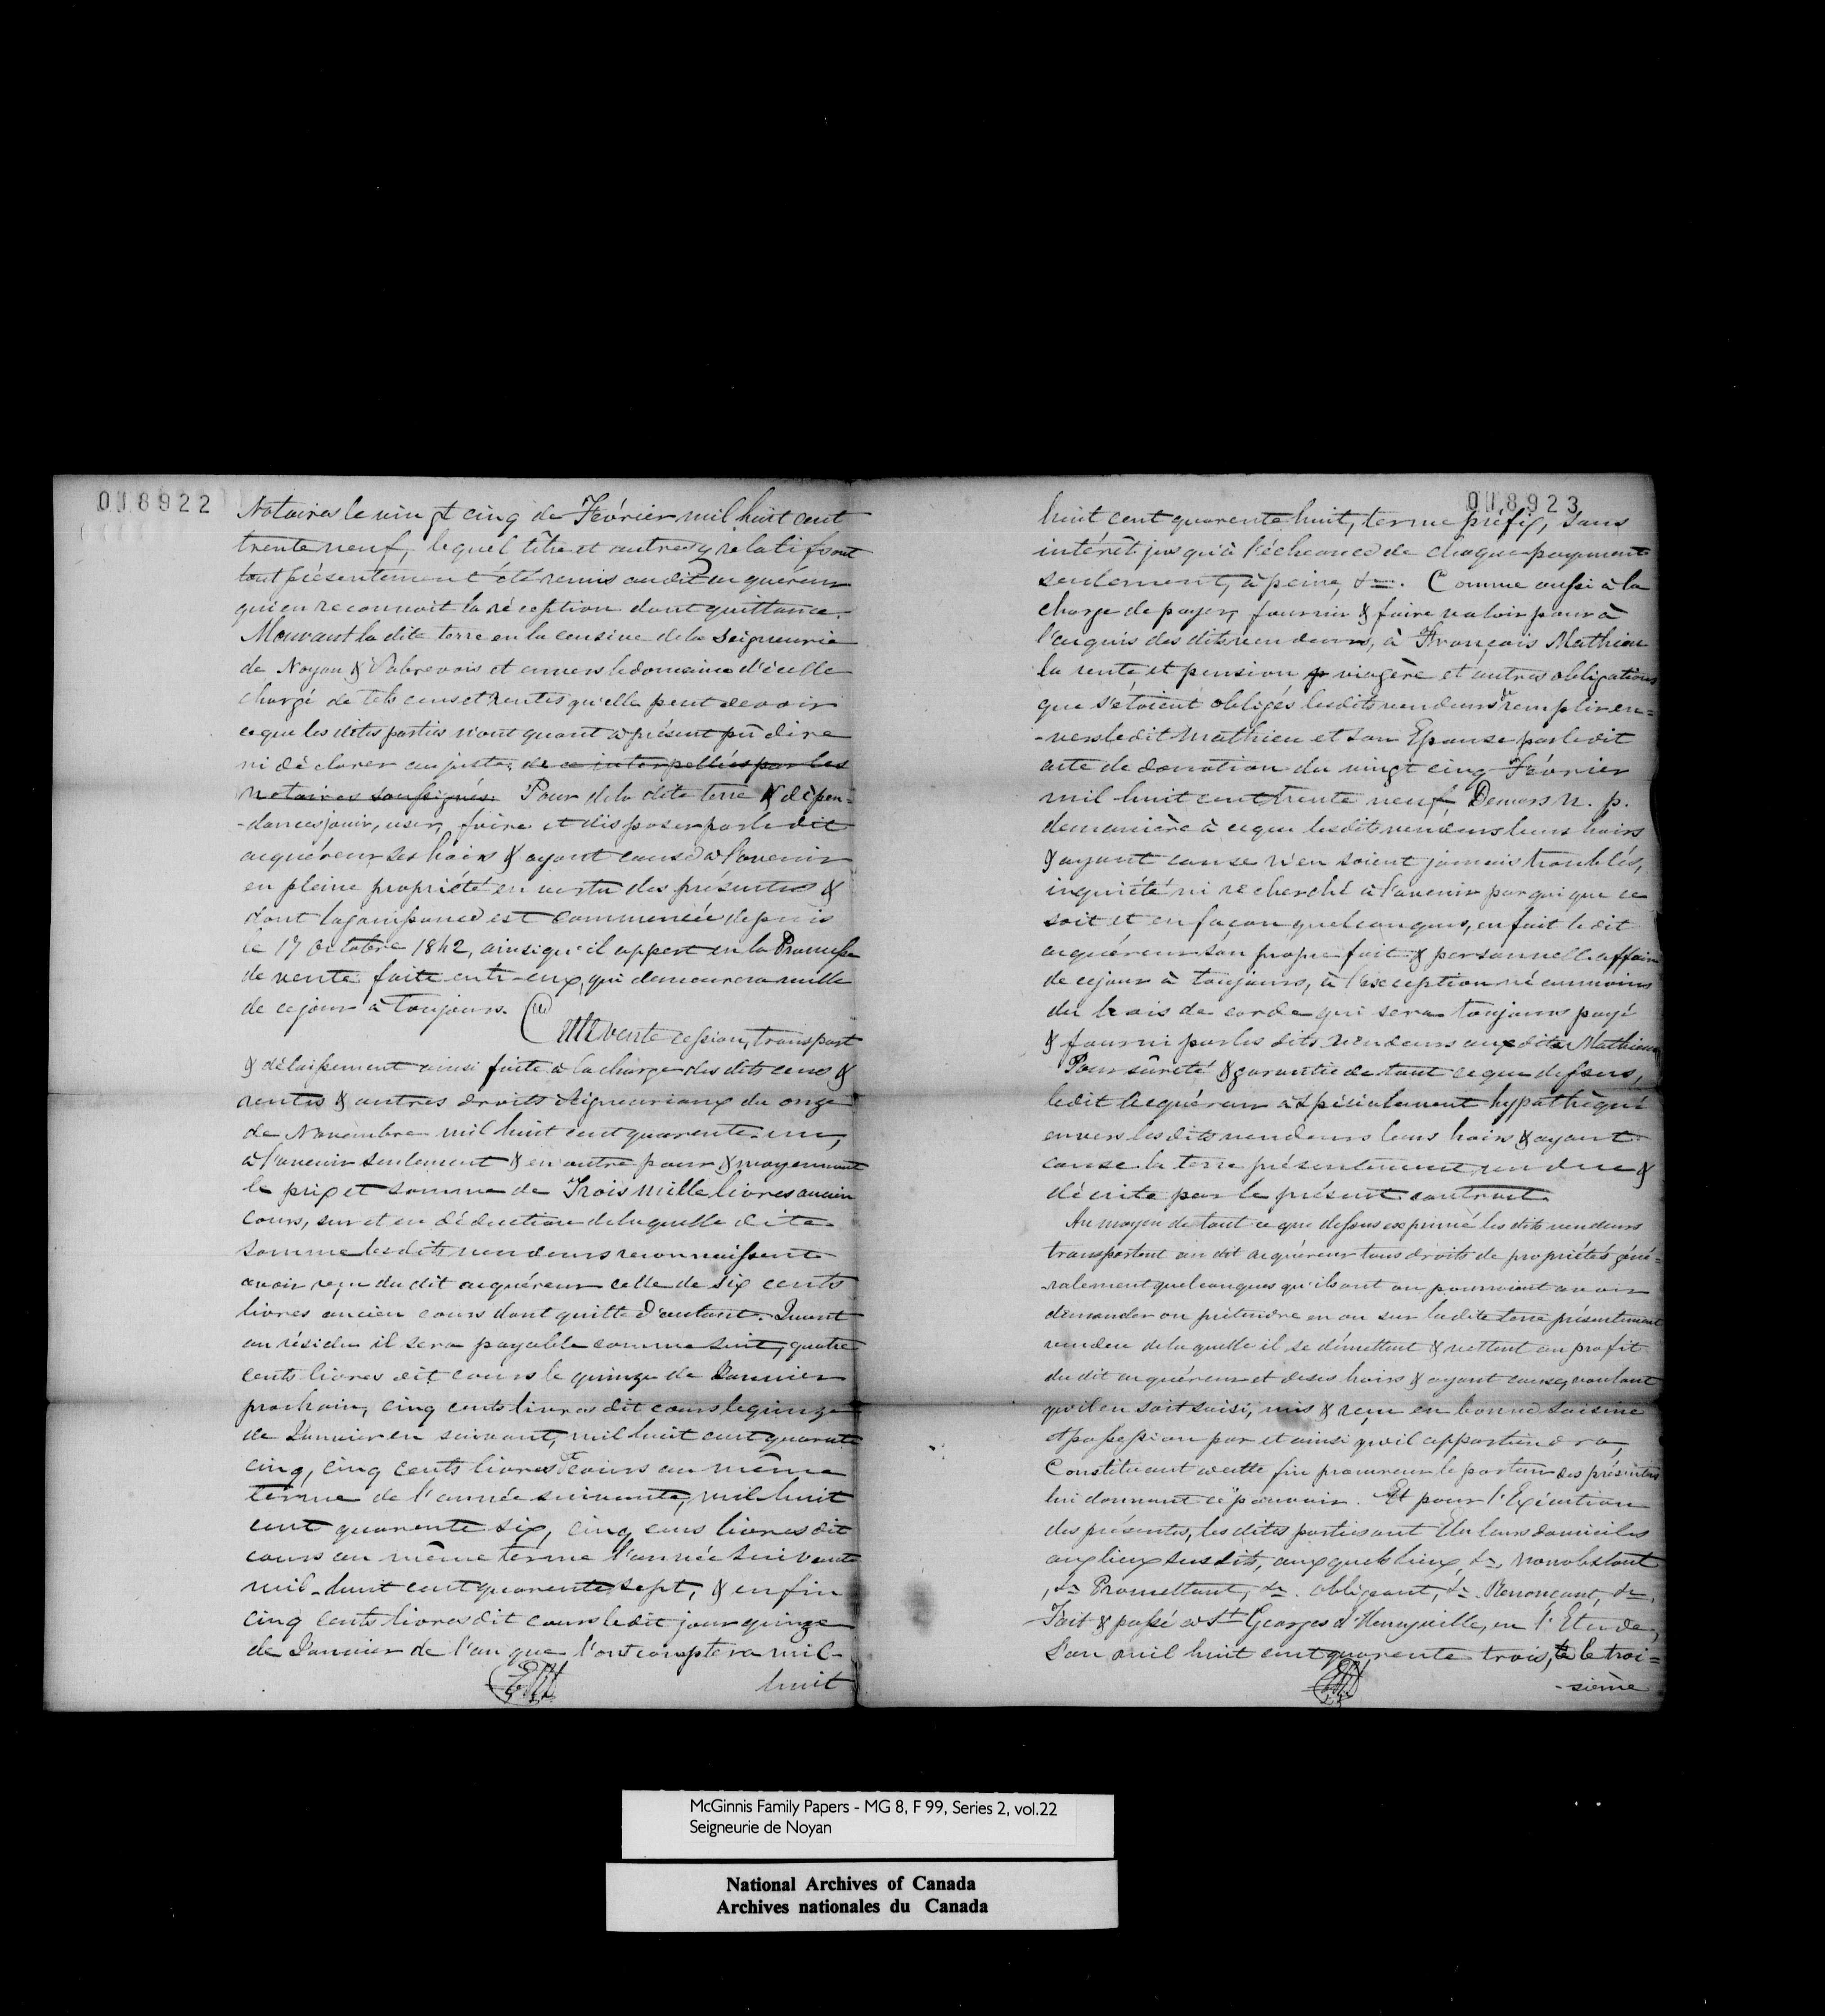 018922
Notaires le vingt cinq de Février mil huit cent
trente neuf, lequel titre et autres y relatifs ont
tout présentement été remis audit acquéreur
qui en reconnoit la réception dont quittance.
Mouvant la dite terre en la censive de la Seigneurie
de Noyan & Sabrevois et envers le domaine d'icelle
chargé de tels cens et rentes qu'elle peut devoir
ce que les dites parties n'ont quant à présent pû dire
ni déclarer au juste; de ce interpellées par les
notaires soussignés. Pour de la dite terre & dépen=
-dances jouir, user, faire et disposer par le dit
acquéreur ses hoirs & ayant cause à l'avenir
en pleine propriété en vertu des présentes &
dont la jouissance est commencée depuis
le 17 Octobre 1842, ainsi qu'il appert en la Promesse
de vente faite entr-eux, qui demeurera nulle
de ce jour à toujours.
Cette vente cession, transport
& délaissement ainsi faite à la charge des dits cens &
rentes & autres droits seigneuriaux du onze
de Novembre mil huit cent quarante-un,
à l'avenir seulement & en outre pour & moyennant
le prix et somme de Trois mille livres ancien
cours, sur et en déduction de laquelle dite
somme les dits vendeurs reconnaissent
avoir reçu du dit acquéreur celle de six cents
livres ancien cours dont quitte d'autant. Quant
au résidu il sera payable comme suit, quatre
cents livres dit cours le quinze de Janvier
prochain, cinq cents livres dit cours le quinze
de Janvier en suivant, mil huit cent quarante
cinq, cinq cents livres dt cours au même
terme de l'année suivante, mil huit
cent quarante six, cinq cens livres dit
cours au même terme l'année suivante
mil-huit cent quarante sept, & enfin
cinq cents livres dit cours le dit jour quinze
de Janvier de l'an que l'on comptera mil-
huit
018923
huit cent quarente huit, terme préfix, sans
intérêt jusqu'à l'échéance de chaque payement
seulement, à peine, &=. Comme aussi à la
charge de payer, fournir & faire valoir pour à
l'acquis des dits vendeurs, à François Mathieu
la rente et pension viagère et autres obligations
que s'étoient obligés les dits vendeurs de remplir en=
-vers le dit Mathieu et son Epouse par le dit
acte de donation du vingt cinq Février
mil huit cent trente neuf Demers N. p.
de manière à ce que les dits vendeurs leurs hoirs
& ayant cause n'en soient jamais troublés,
inquiété ni recherché à l'avenir par qui que ce
soit et en façon quelconques, en fait le dit
acquéreur son propre fait & personnelle affaire
de ce jour à toujours, à l'exception néanmoins
du bois de corde qui sera toujours payé
& fourni par les dits vendeurs aux dits Mathieu
Pour sûreté & garantie de tout ce que dessus,
le dit Acquéreur a spécialement hypothéqué
envers les dits vendeurs leurs hoirs & ayant
cause la terre présentement vendue &
décrite par le présent contrat.
Au moyen de tout ce que dessus exprimé les dits vendeurs
transportent au dit acquéreur tous droits de propriétés géné=
-ralement quelconques qu'ils ont ou pourroient avoir
demander ou prétendre en ou sur la dite terre présentement
vendue de laquelle il se démettent & vettent au profit
du dit acquéreur et de ses hoirs & ayant cause, voulant
qu'il en soit saisi, mis & reçu en bonne saisine
et possession par et ainsi qu'il appartiendra,
Constituant à cette fin procureur le porteur des présentes
lui donnant à pouvoir. Et pour l'Exécution
des présentes, les dites parties ont Elu leurs domiciles
aux lieux susdits, auxquels lieux, &=, nonobstant
, &= Promettant, &=. obligeant, &= Renonçant, &=.
Fait & passé à St Georges d'Henryville, en l'Etude,
L'an mil huit cent quarente trois, le troi=
-sième
McGinnis Family Papers - MG 8, F 99, Series 2, vol.22
Seigneurie de Noyan
National Archives of Canada
Archives nationales du Canada